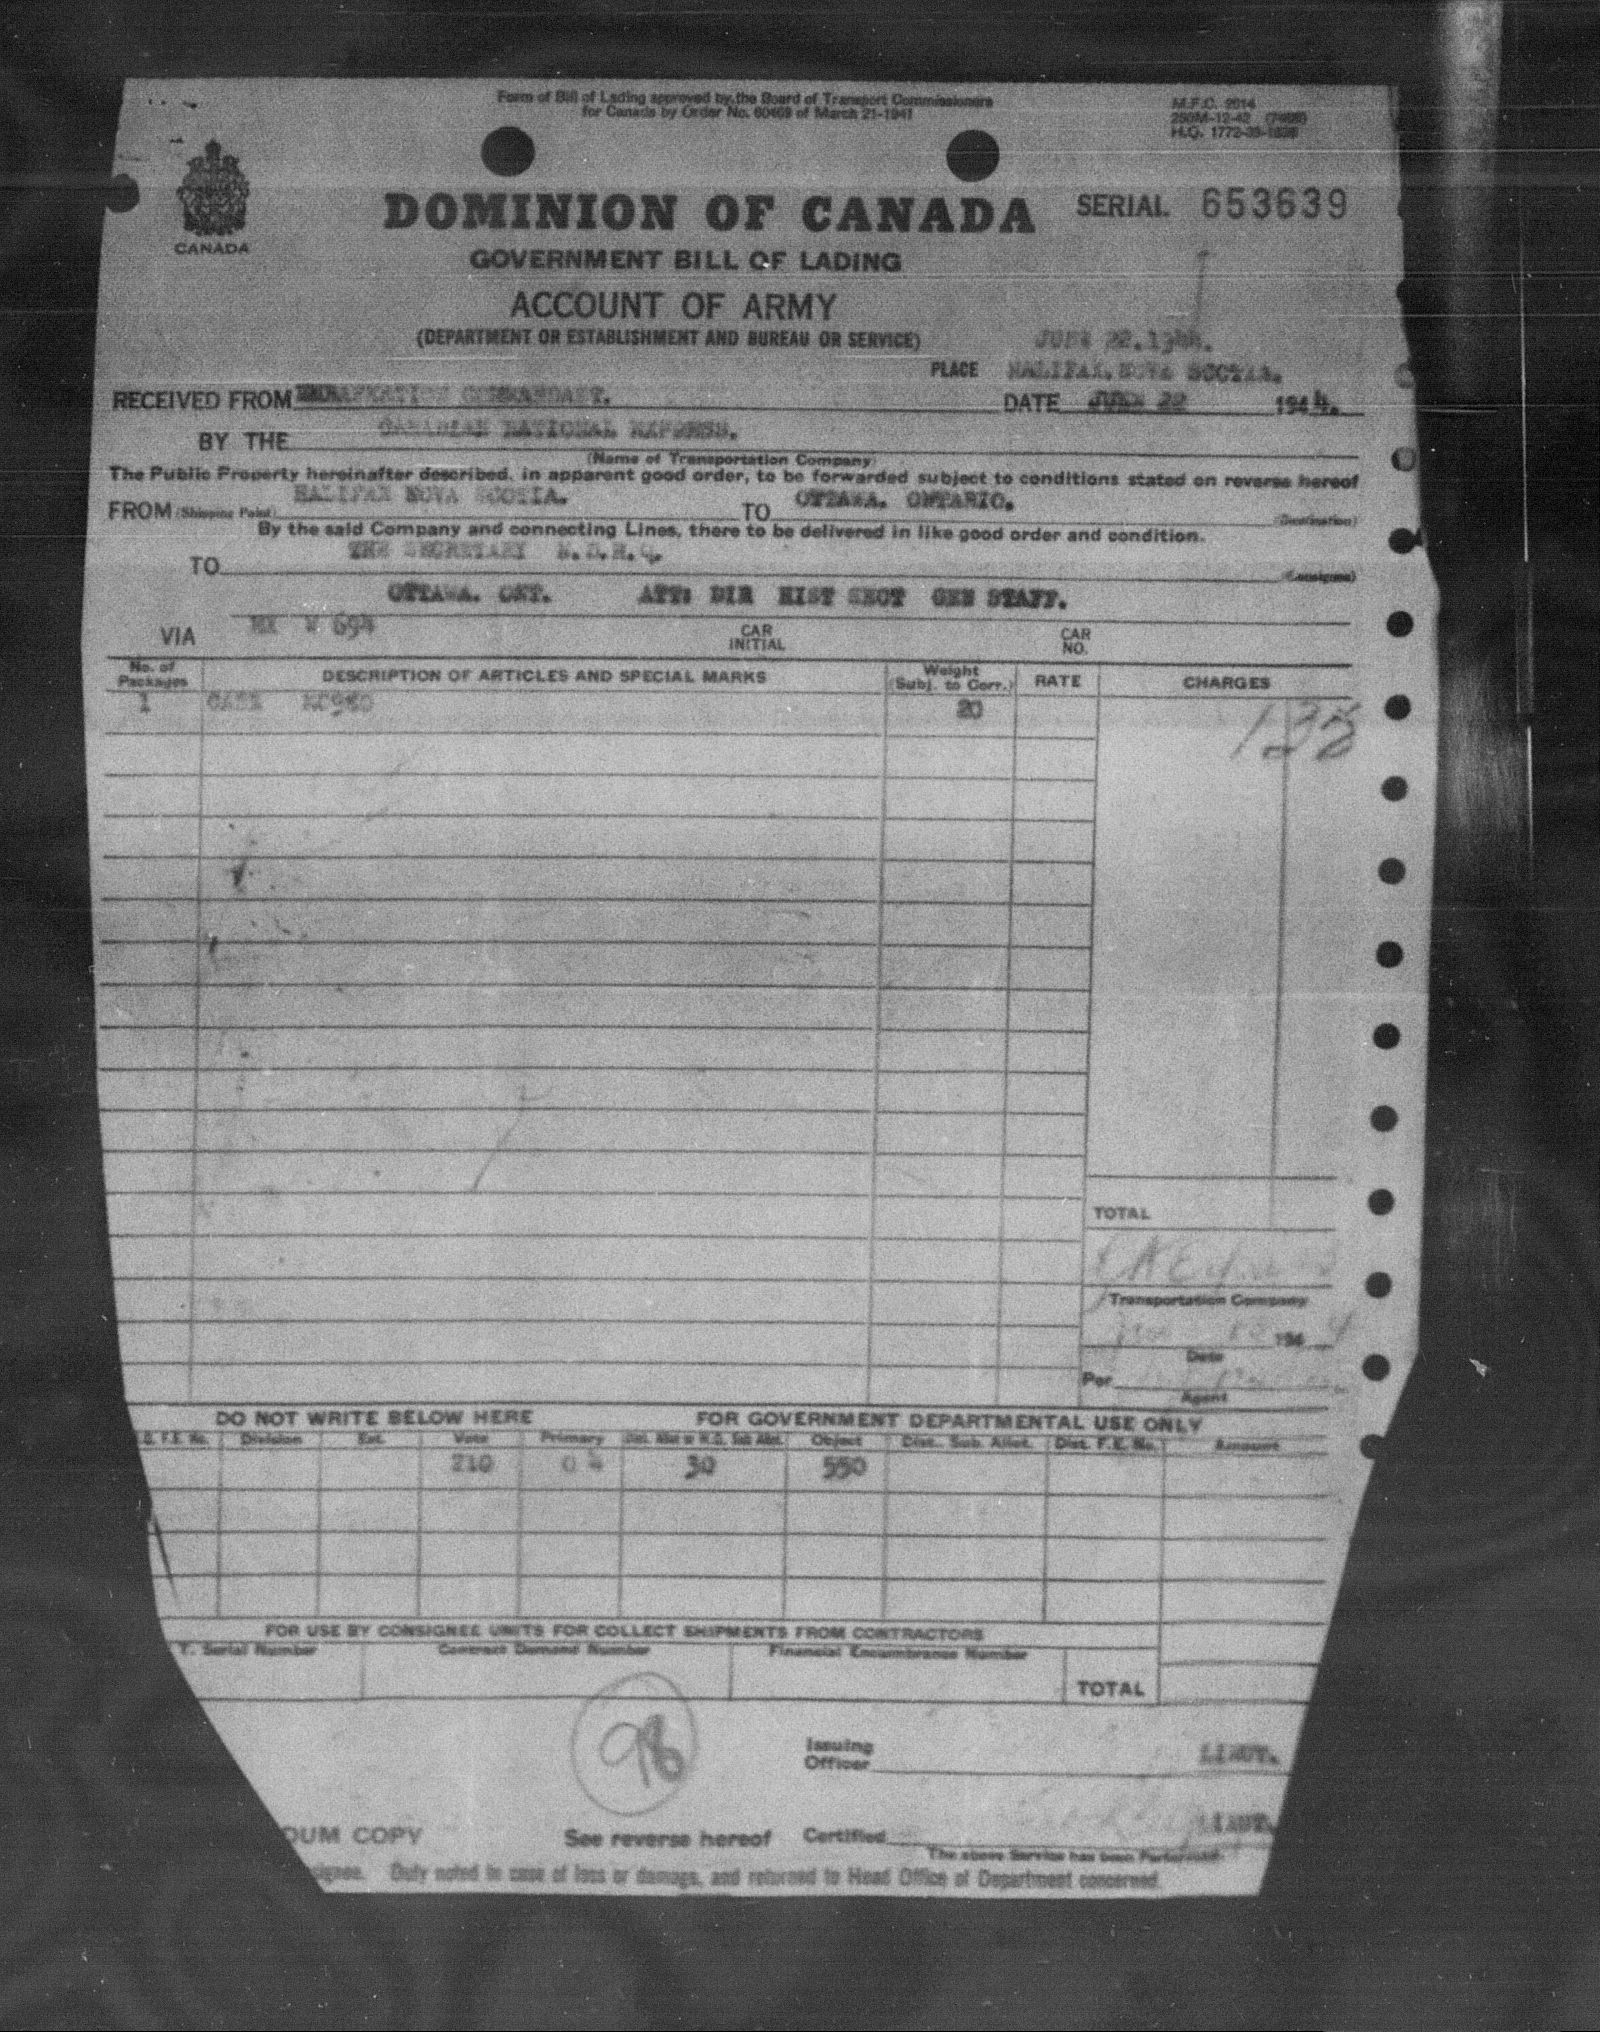 Form of Bill of Lading approved by the Board of Transport Commissioners
for Canada by Order No. 60469 of March 21-1941
M.F.C. 2014
250M-12-42
H.Q. 1772-39-
CANADA
DOMINION OF CANADA
SERIAL 653639
GOVERNMENT BILL OF LADING
ACCOUNT OF ARMY
(DEPARTMENT OR ESTABLISHMENT AND BUREAU OR SERVICE)
JUNE 22.1944.
PLACE HALIFAX, NOVA SCOTIA.
RECEIVED FROM EMBARKATION COMMANDANT.
DATE JUNE 22 1944.
BY THE CANADIAN NATIONAL EXPRESS.
(Name of Transportation Company)
The Public Property hereinafter described, in apparent good order, to be forwarded subject to conditions stated on reverse hereof
FROM (Shipping Point) HALIFAX NOVA SCOTIA. TO OTTAWA. ONTARIO. (Destination)
By the said Company and connecting Lines, there to be delivered in like good order and condition.
TO THE SECRETARY N.D.H.Q. (Consignee)
OTTAWA. ONT. ATT: DIR HIST SECT GEN STAFF.
VIA W 694 CAR INITIAL CAR NO.
No. of Packages DESCRIPTION OF ARTICLES AND SPECIAL MARKS Weight (Subj. to Corr.) RATE CHARGES
1 CASE 20 1 38
TOTAL
Transportation Company
194 4
Date
Per
Agent
DO NOT WRITE BELOW HERE FOR GOVERNMENT DEPARTMENTAL USE ONLY
F.E. No. Division Est. Vote Primary Dist. Allot or H.Q. Sub Allot. Object Dist. Sub. Allot. Dist. F.E. No. Amount
210 04 30 550
FOR USE BY CONSIGNEE UNITS FOR COLLECT SHIPMENTS FROM CONTRACTORS
T. Serial Number Contract Demand Number Financial Encumbrance Number
TOTAL
98
Issuing Officer LIEUT.
DUM COPY See reverse hereof Certified LIEUT.
The above Service has been Performed.
signee. Duly noted in case of loss or damage, and returned to Head Office of Department concerned.